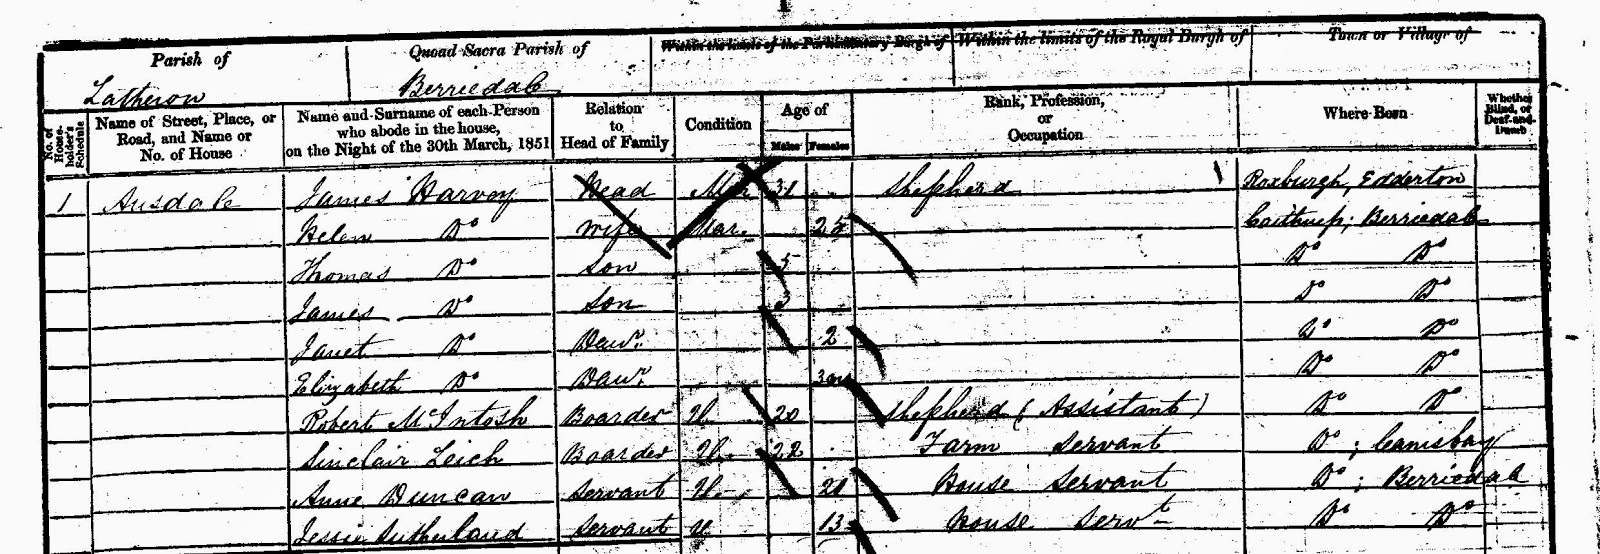 Parish of
Quoad Sacra Parish of
Within the limits of the Parliamentary Burgh of
Within the limits of the Royal Burgh of
Town or Village of
Latheron
Berriedale
No. of House-holder's Schedule
Name of Street, Place, or Road, and Name or No. of House
Name and Surname of each Person who abode in the house, on the Night of the 30th March, 1851
Relation to Head of Family
Condition
Age of
Males
Females
Rank, Profession, or Occupation
Where Born
Whether Blind, or Deaf-and-Dumb
1 Ausdale James Harvey Head Mar 31 Shepherd Roxburgh, Edderton
Helen Do Wife Mar. 25 Caithness; Berriedale
Thomas Do Son 5 Do Do
James Do Son 3 Do Do
Janet Do Dawr. 2 Do Do
Elizabeth Do Dawr. 3m Do Do
Robert McIntosh Boarder U. 20 Shepherd (Assistant) Do Do
Sinclair Leich Boarder U. 22 Farm Servant Do; Canisbay
Anne Duncan Servant U. 21 House Servant Do; Berriedale
Jessie Sutherland Servant U 13 House Servt Do Do